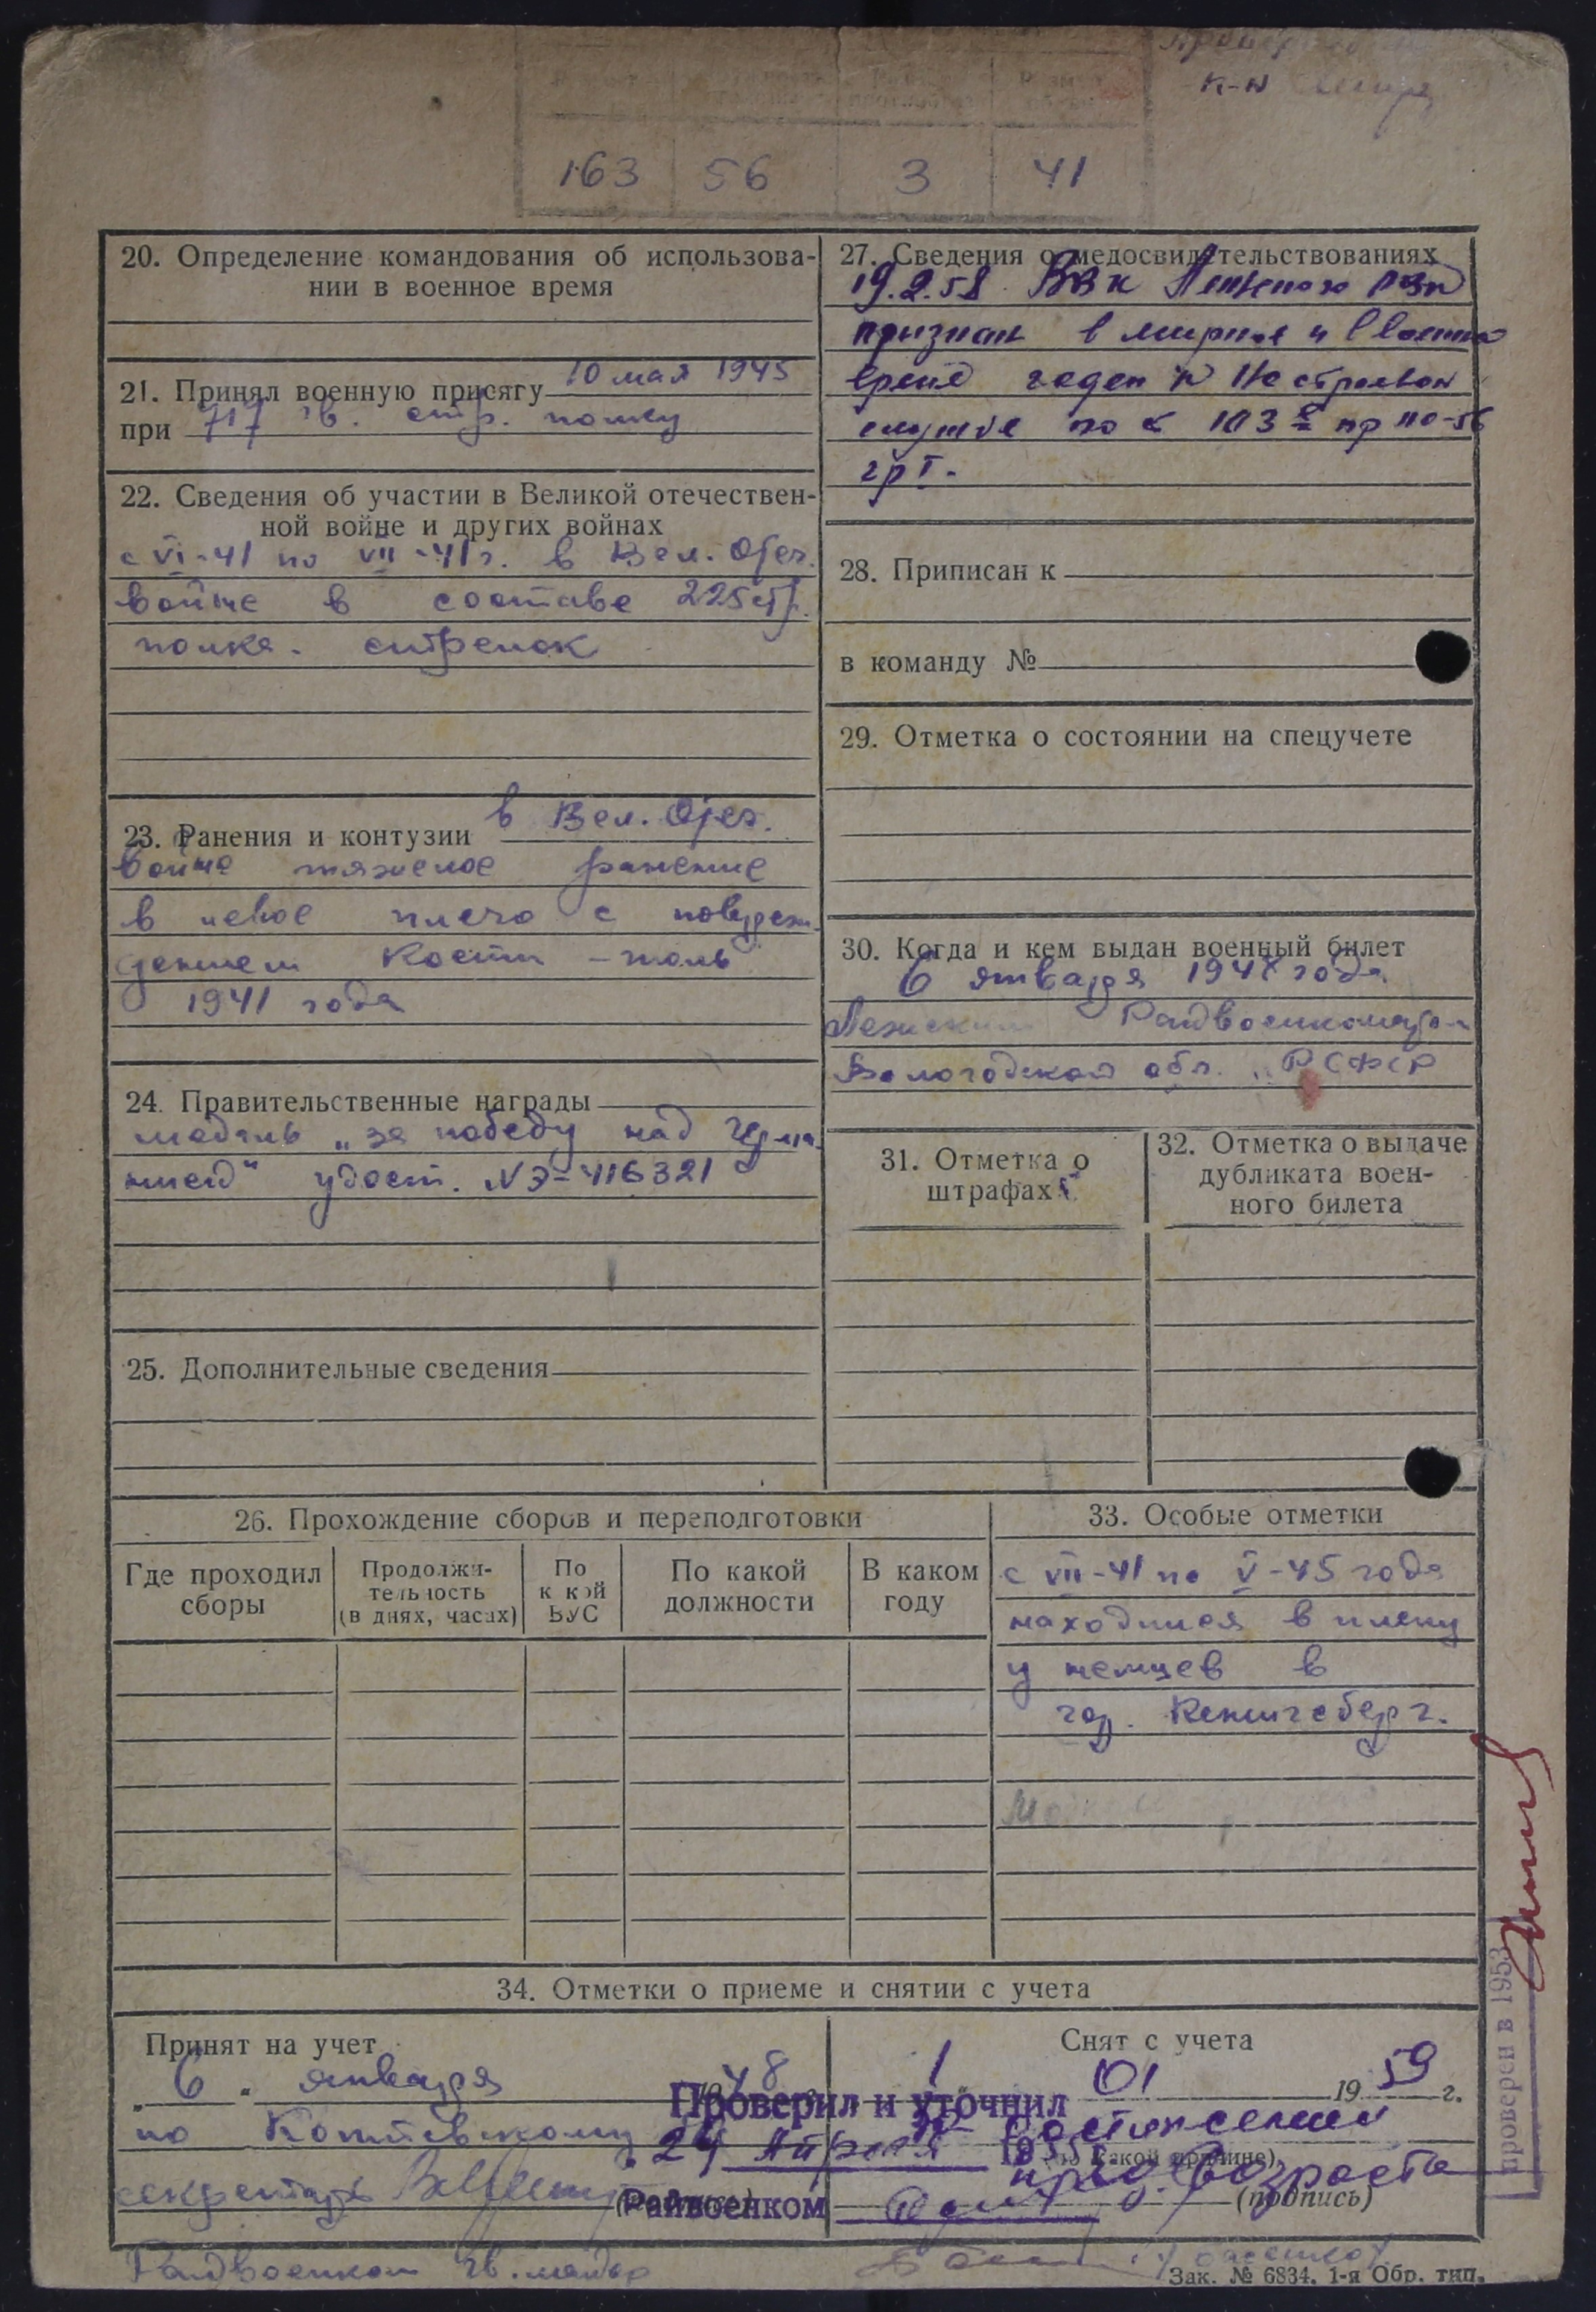 К-н
163 56 3 41
20. Определение командования об использова-
нии в военное время
21. Принял военную присягу 10 мая 1945
при 717 гв. стр. полку
22. Сведения об участии в Великой отечествен-
ной войне и других войнах
с VI-41 по VII-41 г. в Вел. Отеч.
войне в составе 225 стр.
полка. стрелок
23. Ранения и контузии в Вел. Отеч.
войне тяжелое ранение
в левое плечо с повреж-
дением кости - июль
1941 года
24. Правительственные награды
медаль „за победу над Герма-
нией" удост. № Э-416321
25. Дополнительные сведения
27. Сведения о медосвидетельствованиях
19.2.58 ВВК Лежского РВК
признан в мирное и военное
время годен к нестроевой
службе по 103 пр 110-56
гр I.
28. Приписан к
в команду №
29. Отметка о состоянии на спецучете
30. Когда и кем выдан военный билет
6 января 1948 года
Лежским Райвоенкоматом
Вологодская обл. РСФСР
31. Отметка о
штрафах
32. Отметка о выдаче
дубликата воен-
ного билета
26. Прохождение сборов и переподготовки
Где проходил
сборы
Продолжи-
тельность
(в днях, часах)
По
к кой
ВУС
По какой
должности
В каком
году
33. Особые отметки
с VII-41 по V-45 года
находился в плену
у немцев в
гор. Кенигсберг.
34. Отметки о приеме и снятии с учета
Принят на учет
„6" января 48
по Котовскому
секретарь
Райвоенком гв. майор
Снят с учета
1 01 1959 г.
достижении
(по какой причине)
пред. возраста
(подпись)
Проверил и уточнил
24 Апреля 195
Райвоенком
проверен в 1953
Зак. № 6834. 1-я Обр. тип.